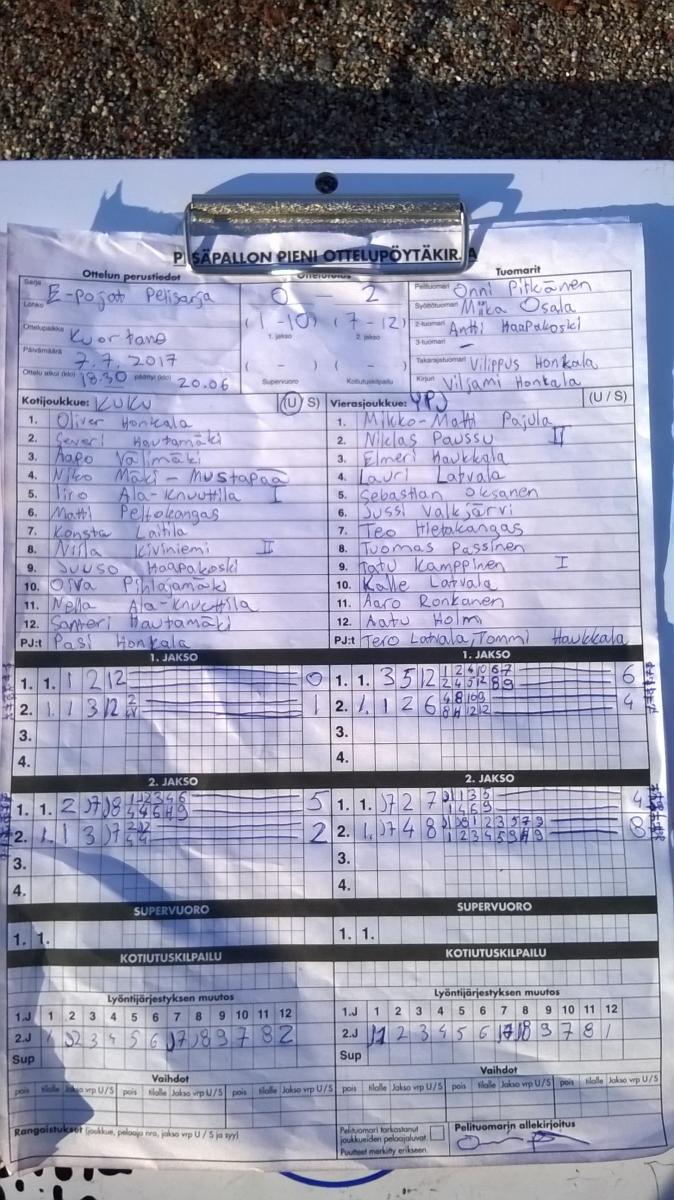 PESÄPALLON PIENI OTTELUPÖYTÄKIRJA
Ottelun perustiedot
Ottelutulos
Tuomarit
Sarja
E-pojat Pelisarja
Lohko
0 — 2
Pelituomari Onni Pitkänen
Syöttötuomari Miika Osala
Ottelupaikka Kuortane
(1-10) (7-12)
1. jakso 2. jakso
2-tuomari Antti Haapakoski
3-tuomari –
Päivämäärä 7.7.2017
( - ) ( - )
Takarajatuomari Vilippus Honkala
Ottelu alkoi (klo) 18.30 päättyi (klo) 20.06
Supervuoro Kotiutuskilpailu
Kirjuri Viljami Honkala
Kotijoukkue: KuKu (U / S)
Vierasjoukkue: YPJ (U / S)
1. Oliver Honkala
2. Severi Hautamäki
3. Aapo Välimäki
4. Niko Mäki-Mustapää
5. Iiro Ala-Knuuttila I
6. Matti Peltokangas
7. Konsta Laitila
8. Niila Kiviniemi II
9. Juuso Haapakoski
10. Oiva Pihlajamäki
11. Nella Ala-Knuuttila
12. Santeri Hautamäki
PJ:t Pasi Honkala
1. Mikko-Matti Pajula
2. Niklas Paussu II
3. Elmeri Haukkala
4. Lauri Latvala
5. Sebastian Oksanen
6. Jussi Valkjärvi
7. Teo Hietakangas
8. Tuomas Passinen
9. Tatu Kamppinen I
10. Kalle Latvala
11. Aaro Ronkanen
12. Aatu Holm
PJ:t Tero Latvala, Tommi Haukkala
1. JAKSO
1. 1. 1 2 12 0
2. 1. 1 3 12 1
3.
4.
1. JAKSO
1. 1. 3 5 12 6
2. 1. 1 2 6 4
3.
4.
2. JAKSO
1. 1. 2 5
2. 1. 1 3 2
3.
4.
2. JAKSO
1. 1. 2 7 4
2. 1. 4 8 8
3.
4.
SUPERVUORO
1. 1.
SUPERVUORO
1. 1.
KOTIUTUSKILPAILU
KOTIUTUSKILPAILU
Lyöntijärjestyksen muutos
1.J 1 2 3 4 5 6 7 8 9 10 11 12
2.J 3 4 5 6 9 7 8 2
Sup
Lyöntijärjestyksen muutos
1.J 1 2 3 4 5 6 7 8 9 10 11 12
2.J 2 3 4 5 6 9 7 8 1
Sup
Vaihdot
pois tilalle Jakso vrp U/S pois tilalle Jakso vrp U/S pois tilalle Jakso vrp U/S
Vaihdot
pois tilalle Jakso vrp U/S pois tilalle Jakso vrp U/S pois tilalle Jakso vrp U/S
Rangaistukset (joukkue, pelaaja nro, jakso vrp U / S ja syy)
Pelituomari tarkastanut
joukkueiden pelaajaluvat.
Puutteet merkitty erikseen.
Pelituomarin allekirjoitus